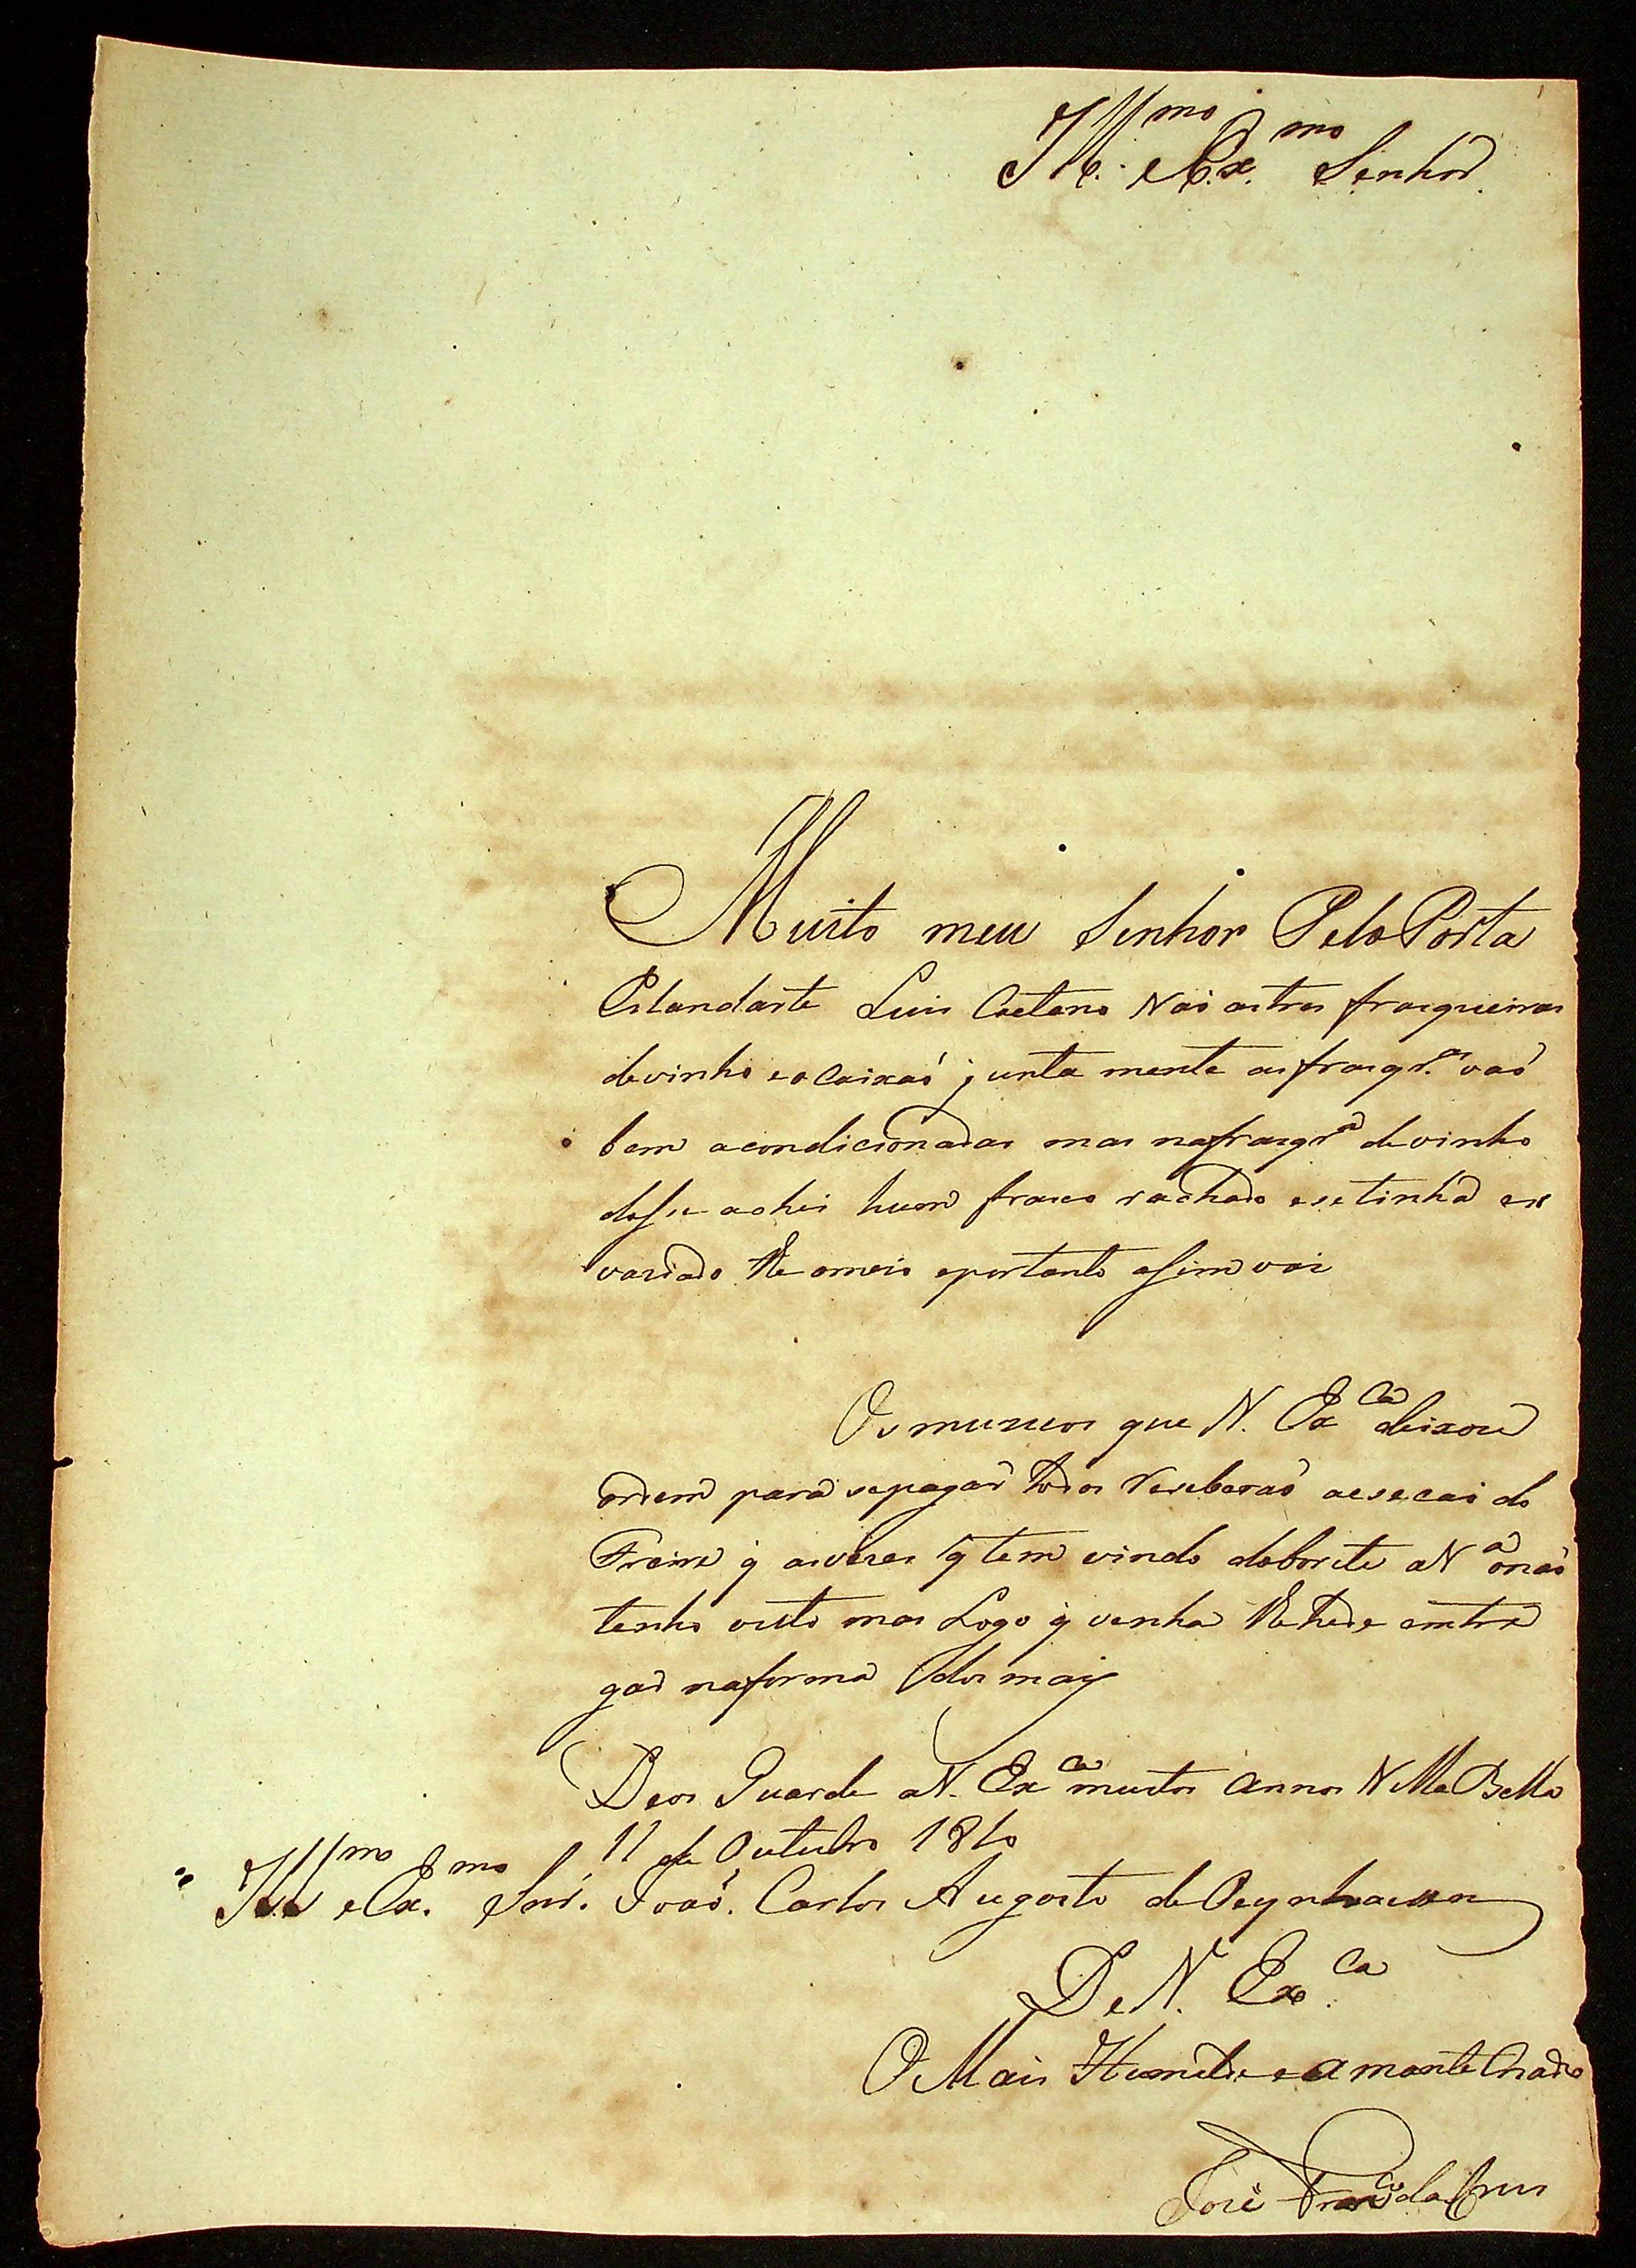 Ill.mo e Ex.mo Senhor
Muito meu Senhor Pelo Porta
Estandarte Luis Caetano Vaõ as tres frasqueiras
de vinho e o Caixaõ junta mente as frasqr.as vaõ
bem acondicionadas mas na frasqr.a de vinho
achei hum frasco rachado e se tinha es
variado the o meio e portanto asim vai
Os que V. Ex.ca deixou
ordem para se pagar todos Reseberaõ
Freire q as vezes q tem vindo a V.a o naõ
tenho visto mas Logo q venha se hede entre
gar na forma dos mais
Deos Guarde a V. Ex.ca muitos annos Villa Bella
11 de Outubro 1810
Ill.mo e Ex.mo Snr. Joaõ. Carlos Augosto de Oeynhausen
De V. Ex.ca
O Mais Humilde e a mante Criado
José Fran.co da Crus